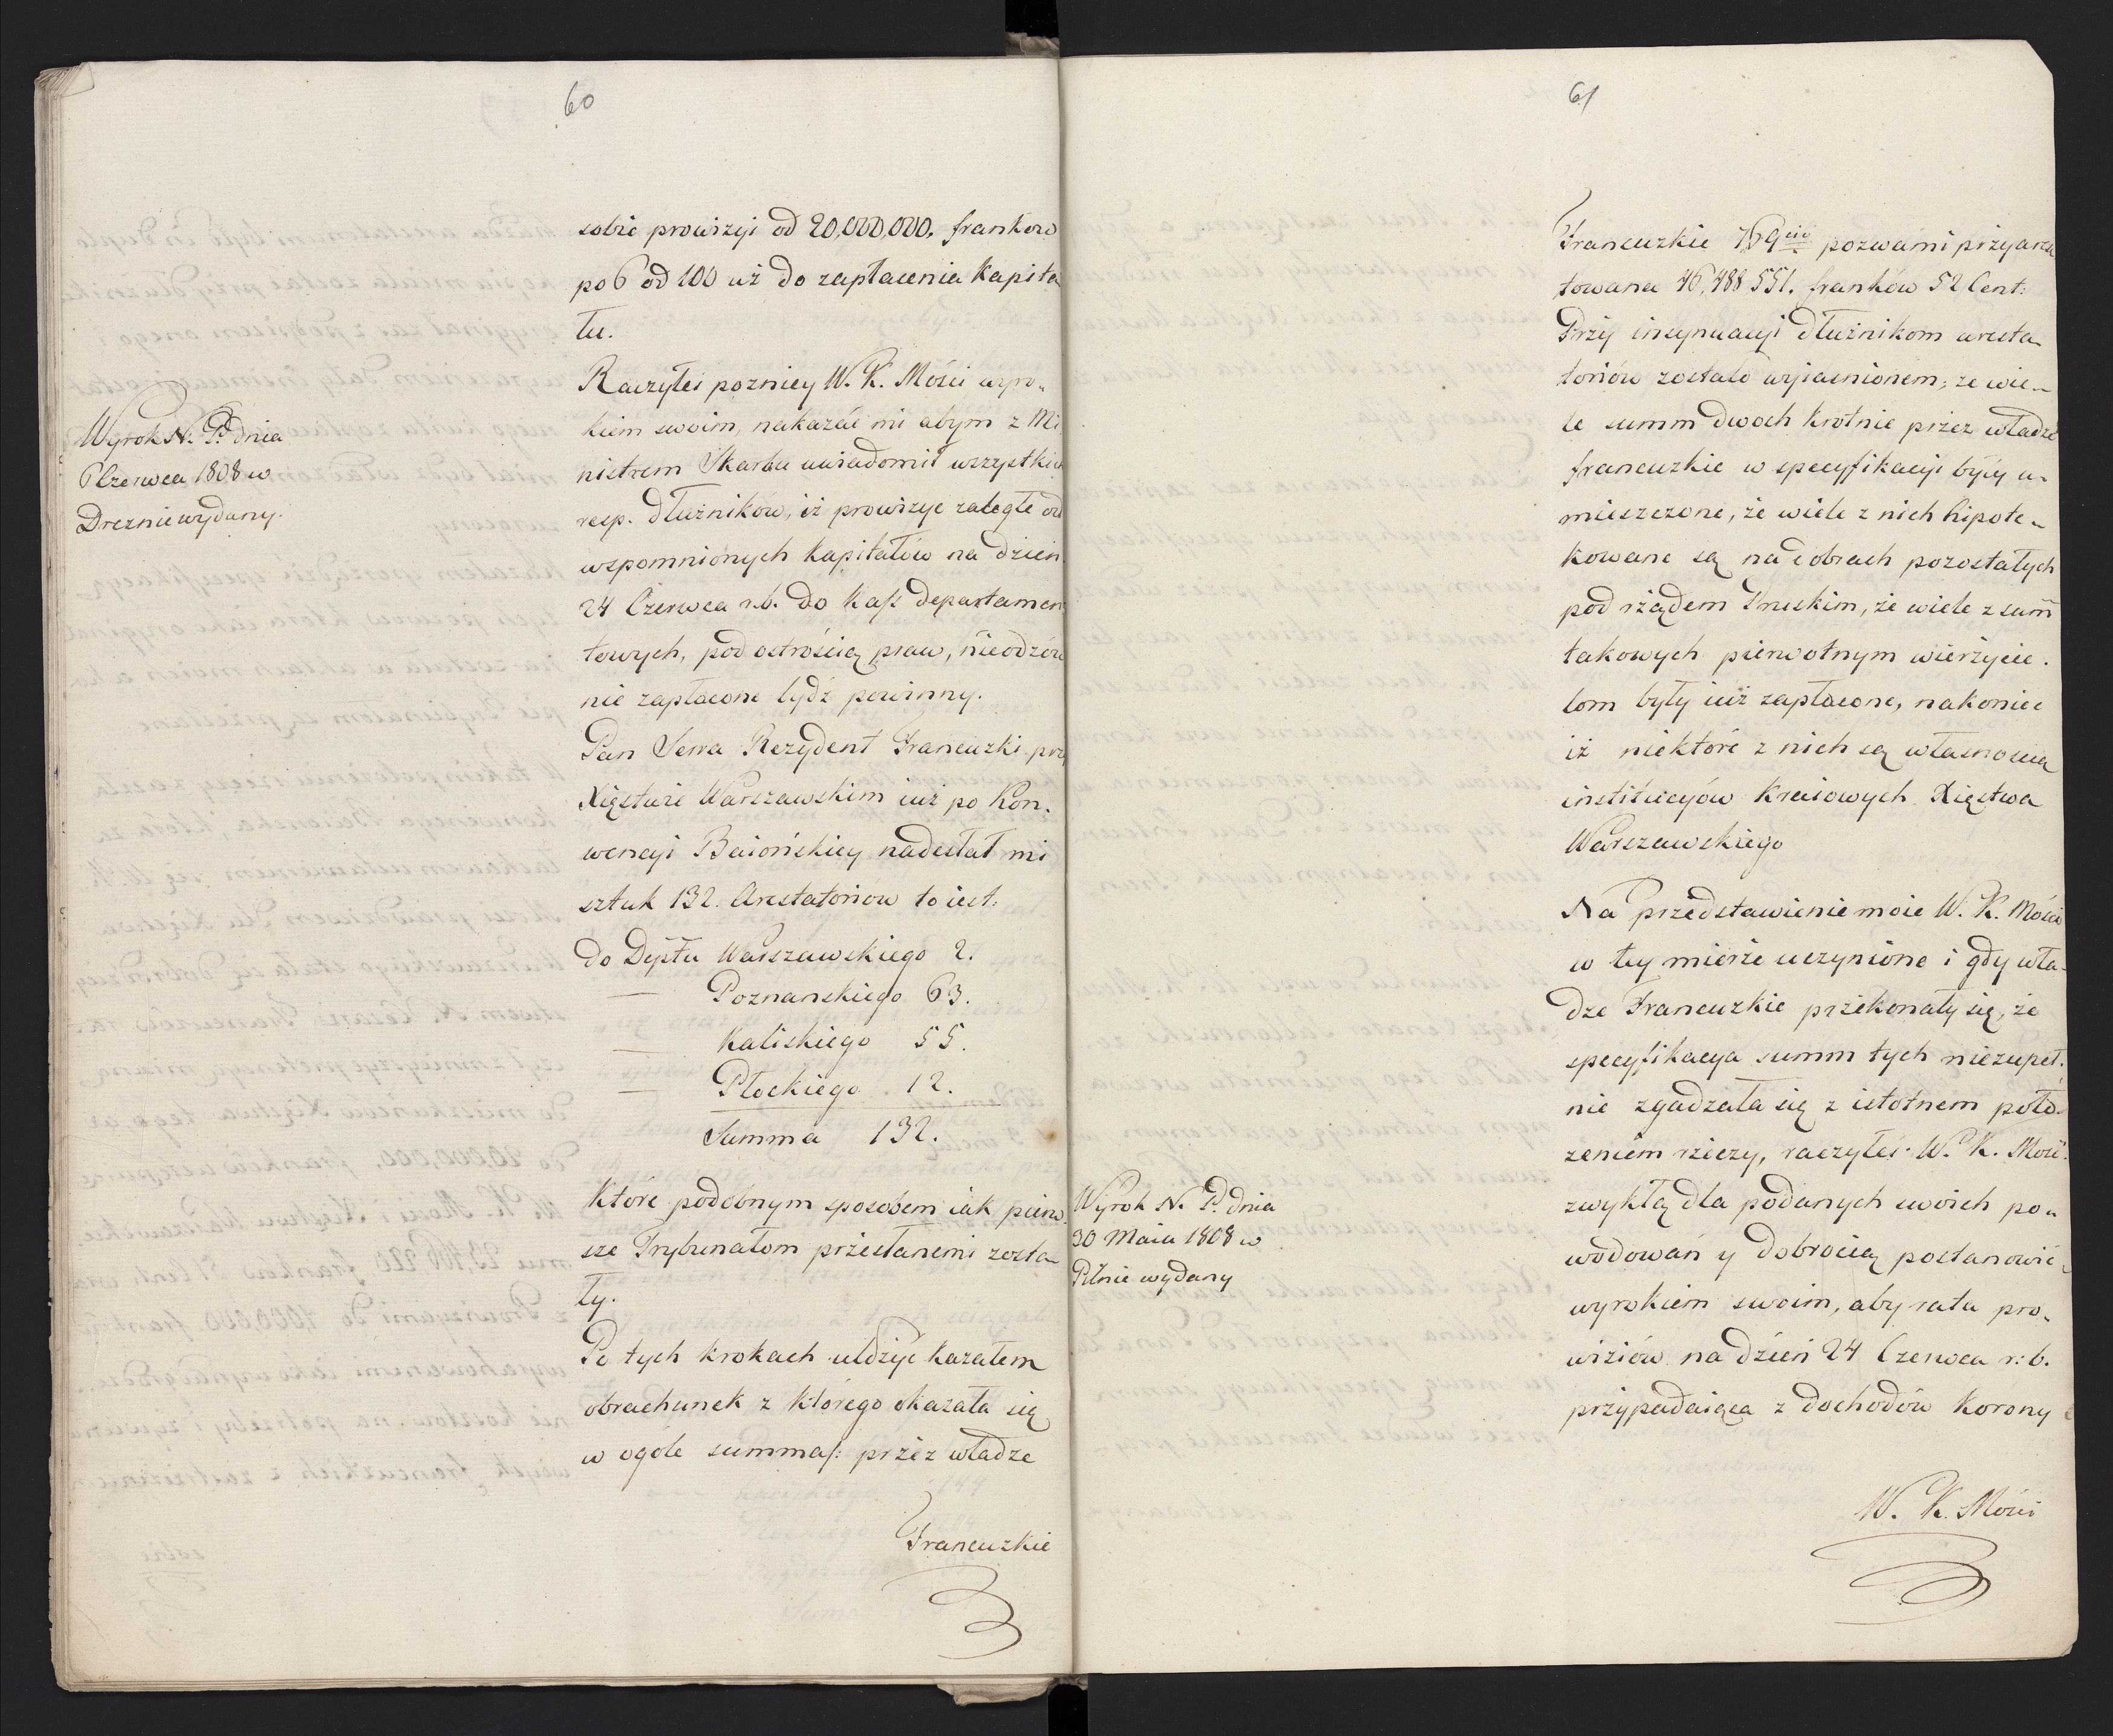 60
sobie prowizyi od 20,000,000. frankow
po 6 od 100 iż do zapłacenia Kapita
łu.
Raczyłeś pozniey W. K. Mości wyro„
kiem swoim, nakazać mi abym z Mi
nistrem Skarbu uwiadomił wszystkich
resp. dłużników, iż prowizye zaległe od
wspomnionych Kapitałów na dzień
24 Czerwca r.b. do Kass departamen
towych, pod ostrością praw, nieodzów
nie zapłacone bydź powinny.
Wyrok N. P. dnia
6 Czerwca 1808 w
Dreznie wydany.
Pan Serra Rezydent Francuzki przy
Xięstwie Warszawskim iuż po Kon„
wencyi Baiońskiey nadesłał mi
sztuk 132. Arestatoriów to iest:
do Depttu Warszawskiego 2.
— Poznanskiego 63.
— Kaliskiego 55.
— Płockiego 12.
Summa 132.
Które podobnym sposobem iak pierw
sze Trybunałom przesłanemi zosta„
ły.
Po tych krokach ułożyć kazałem
obrachunek z którego okazała się
w ogóle summa /: przez władze
Francuzkie
61
Francuzkie 769cią pozwami przyaresz
towana 46,488 551. franków 52 Cent:
Przy insynuacyi dłużnikom aresta„
toriów zostało wyiasnionem; że wie„
le summ dwoch krotnie przez władze
francuzkie w specyfikacyi były u„
mieszczone, że wiele z nich hipote„
kowane są na dobrach pozostałych
pod rządem Pruskim, że wiele z summ
takowych pierwotnym wierzycie„
lom były iuż zapłacone, nakoniec
iż niektóre z nich są własnoscią
instytucyów kraiowych Xięstwa
Warszawskiego
Na przedstawienie moie W. K. Mości
w tey mierze uczynione i gdy wła„
dze Francuzkie przekonały się, że
specyfikacya summ tych niezupeł„
nie zgadzała się z istotnem poło„
żeniem rzeczy, raczyłeś W. K. Mość
zwykłą dla poddanych swoich po„
wodowań y dobrocią postanowić
wyrokiem swoim, aby rata pro„
wiziów na dzień 24 Czerwca r: b.
przypadaiąca z dochodów Korony
Wyrok N. P. dnia
30 Maia 1808 w
Pilnie wydany
W. K. Mości